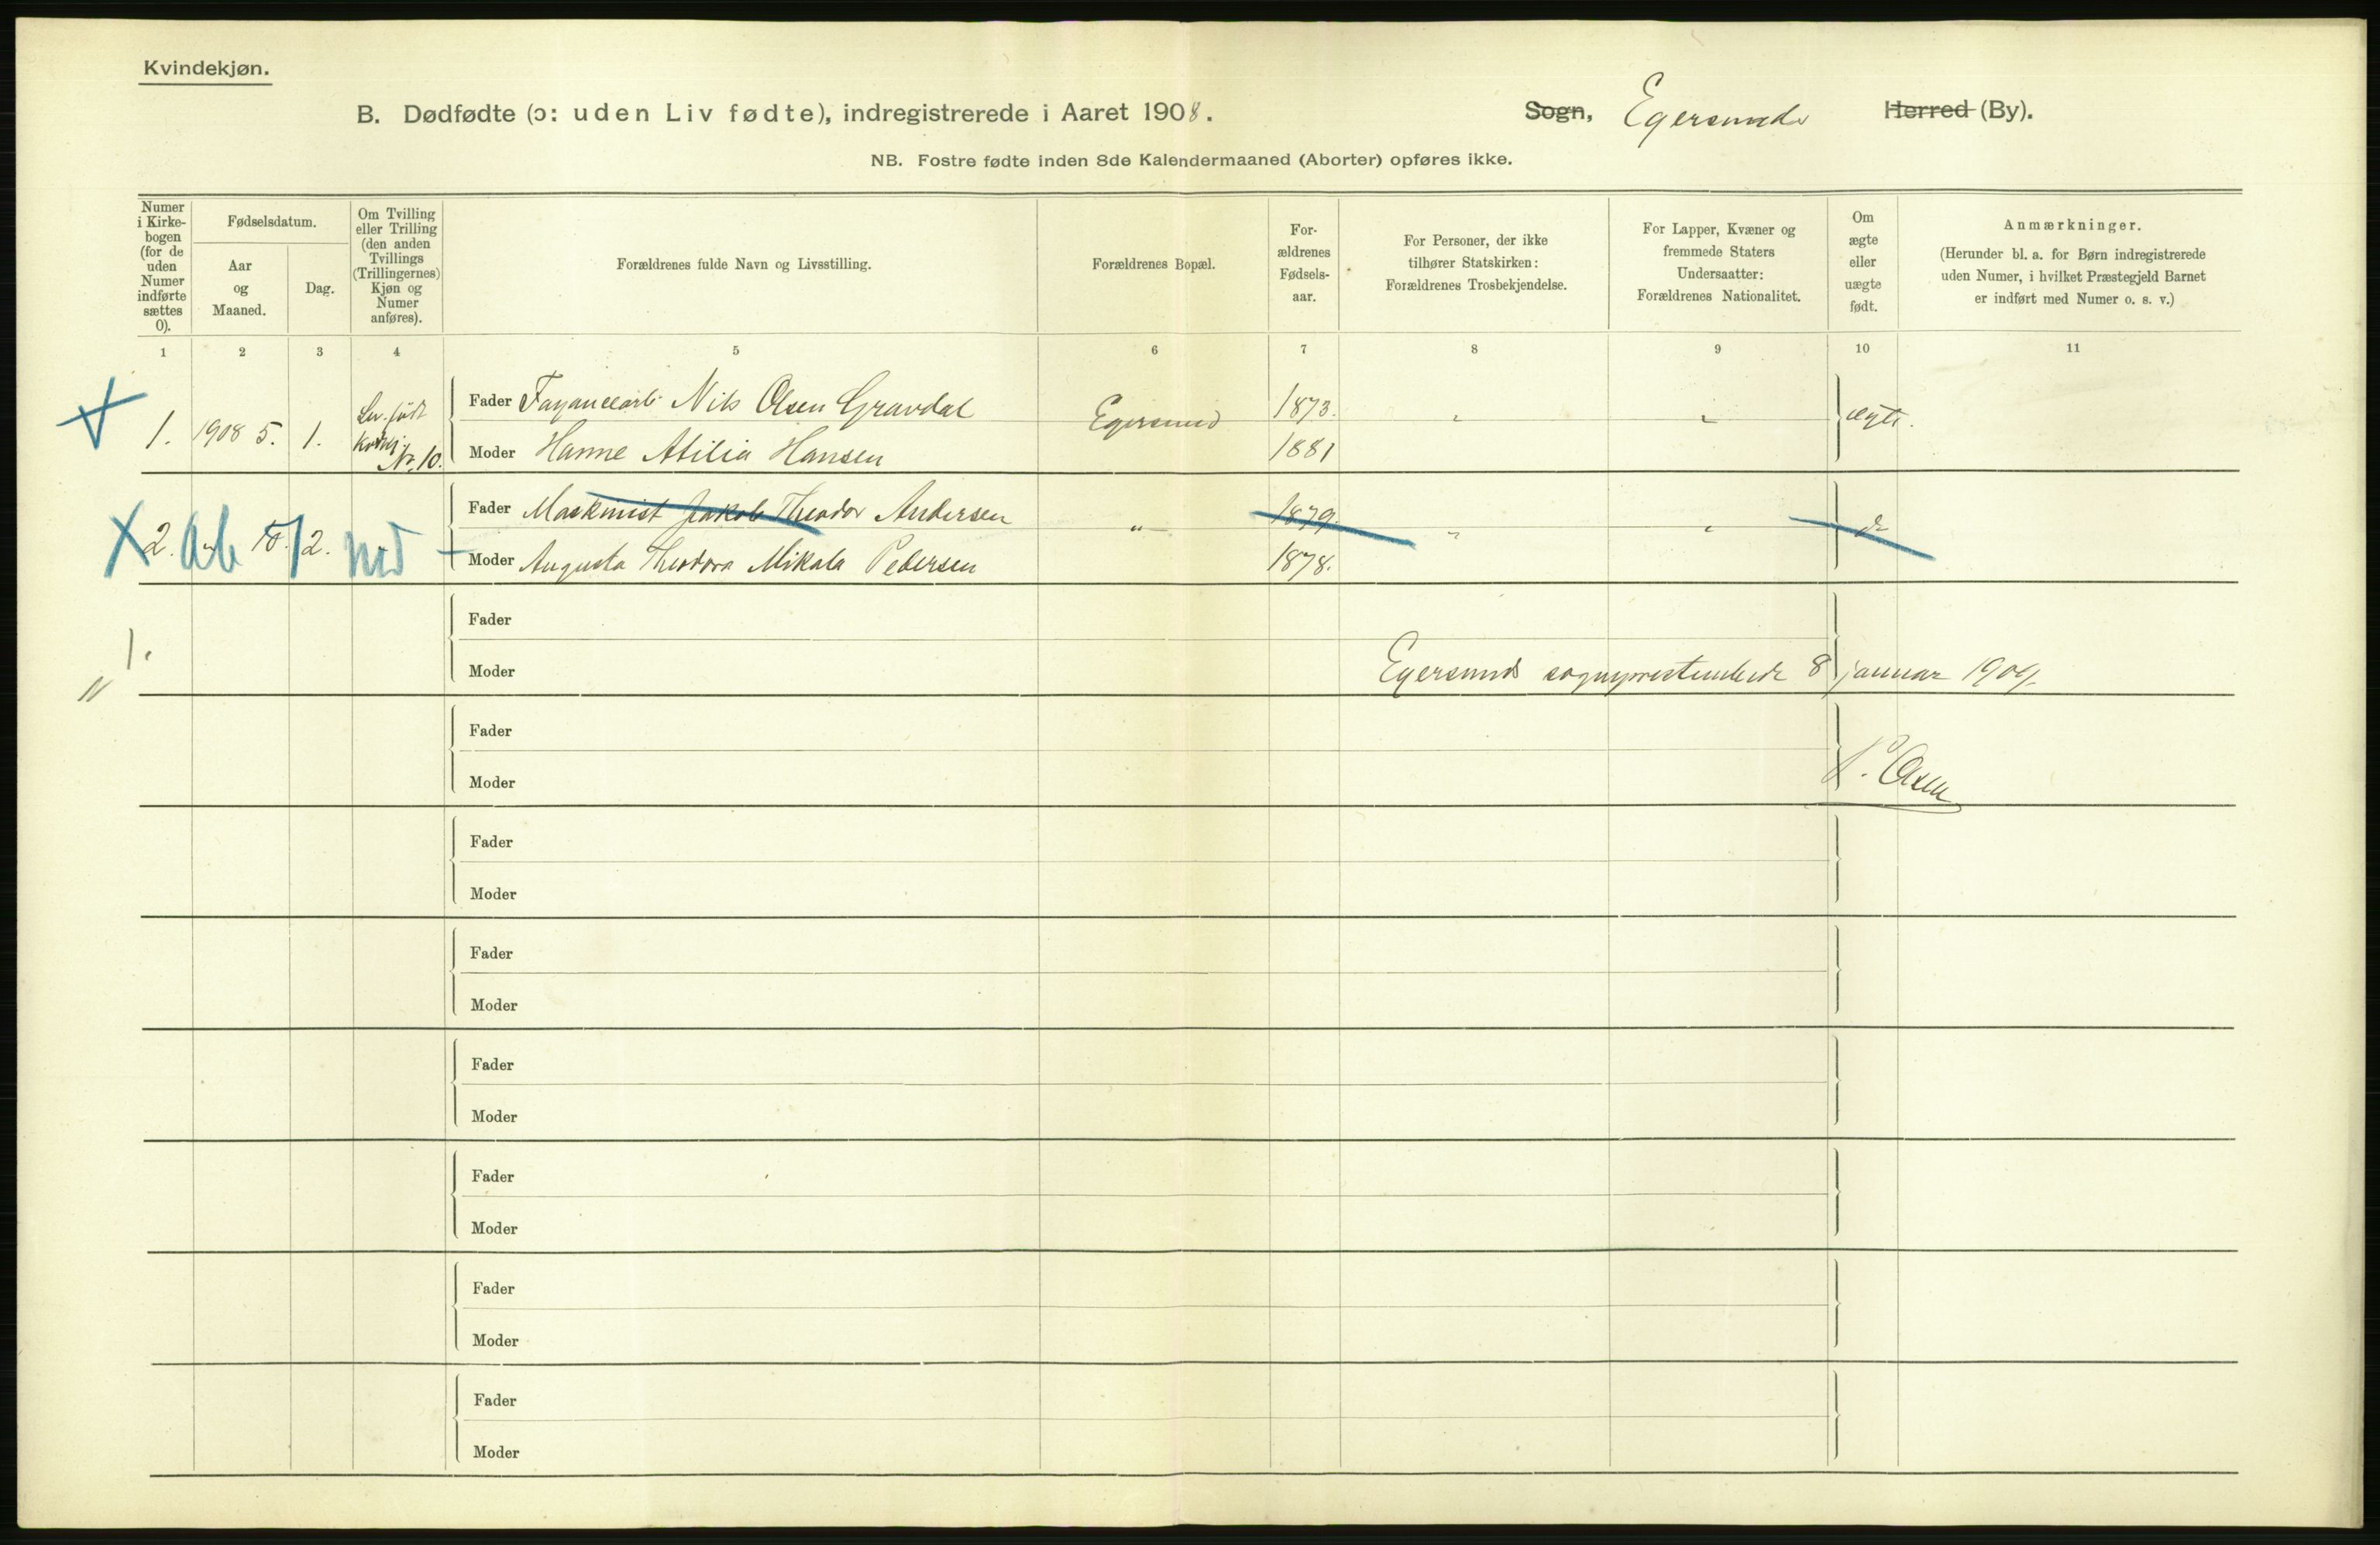 Kvindekjøn.
B. Dødfødte (ɔ: uden Liv fødte), indregistrerede i Aaret 1908.
Sogn, Egersunds Herred (By).
NB. Fostre fødte inden 8de Kalendermaaned (Aborter) opføres ikke.
Numer
i Kirke-
bogen
(for de
uden
Numer
indførte
sættes
0).
Fødselsdatum.
Aar
og
Maaned.
Dag.
Om Tvilling
eller Trilling
(den anden
Tvillings
(Trillingernes)
Kjøn og
Numer
anføres).
Forældrenes fulde Navn og Livsstilling.
Forældrenes Bopæl.
For-
ældrenes
Fødsels-
aar.
For Personer, der ikke
tilhører Statskirken:
Forældrenes Trosbekjendelse.
For Lapper, Kvæner og
fremmede Staters
Undersaatter:
Forældrenes Nationalitet.
Om
ægte
eller
uægte
født.
Anmærkninger.
(Herunder bl. a. for Børn indregistrerede
uden Numer, i hvilket Præstegjeld Barnet
er indført med Numer o. s. v.)
1 2 3 4 5 6 7 8 9 10 11
1. 1908 5. 1. Lev. født
Nr. 10.
Fader Fayancearb. Nils Olsen Gravdal Egersund 1873. " " ægte.
Moder Hanne Atilia Hansen 1881
2. 10. 12.
Fader Maskinist Jakob Theodor Andersen " 1879. " " do
Moder Augusta Theodora Mikala Pedersen 1878.
Fader
1.
Moder Egersunds sogneprestembede 8 januar 1909.
"
Fader
Moder
P. Olsen
Fader
Moder
Fader
Moder
Fader
Moder
Fader
Moder
Fader
Moder
Fader
Moder